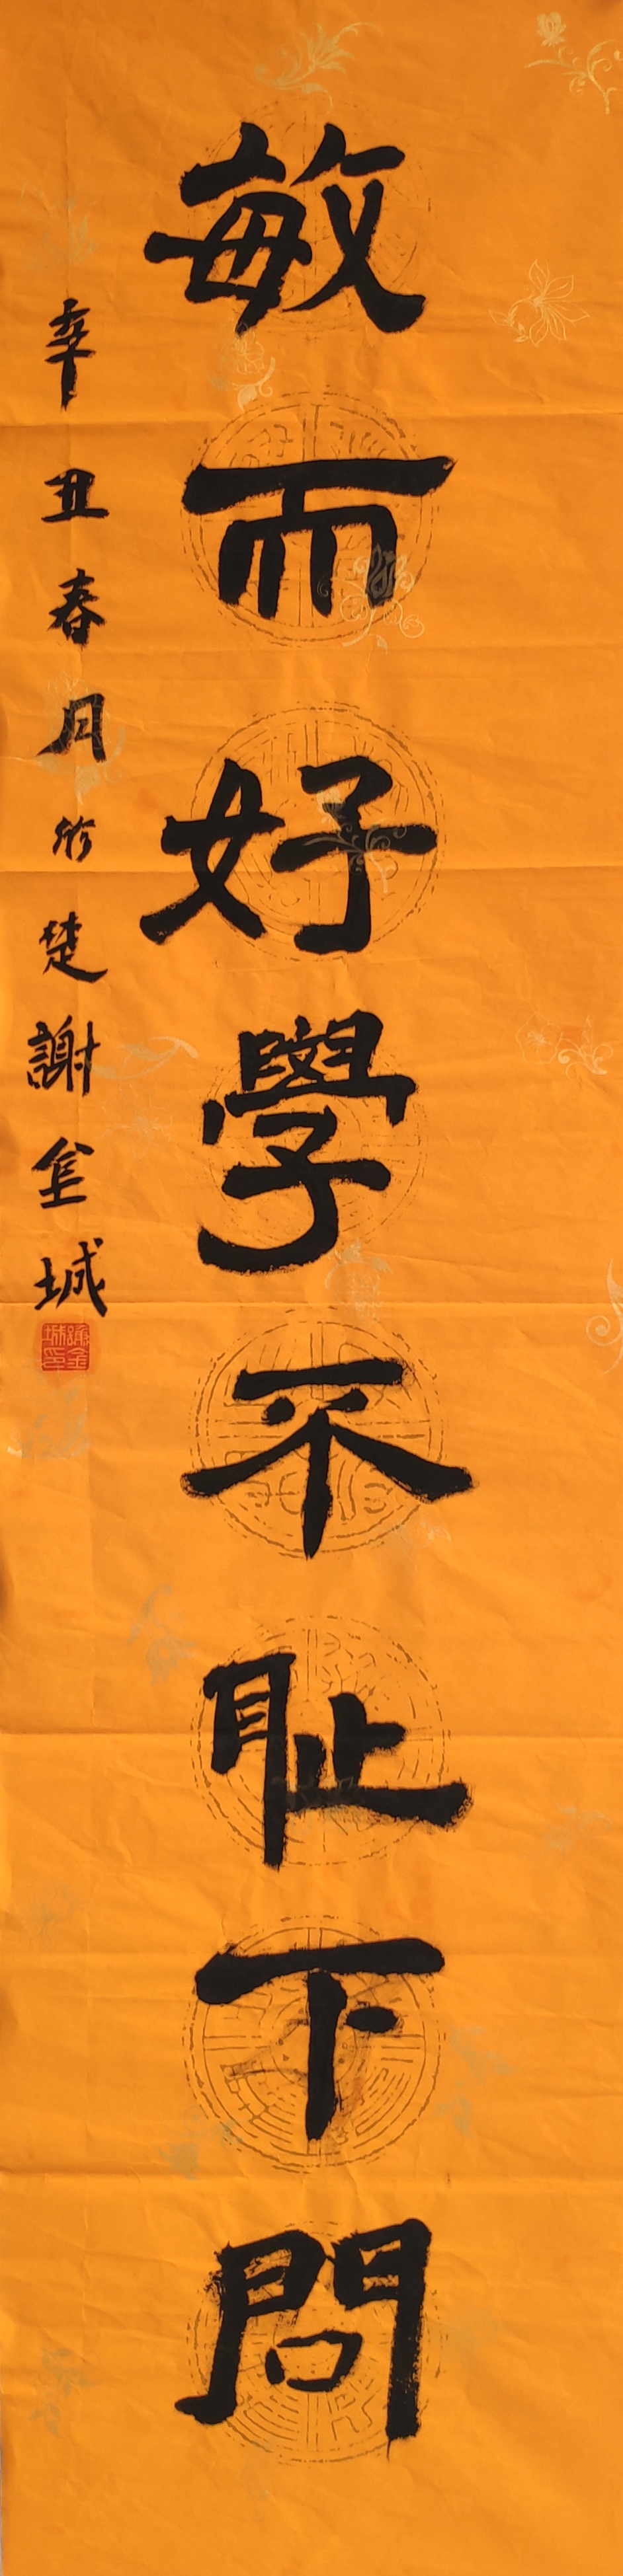 敏而好學不耻下問
辛丑春月於楚謝金城
謝金城印